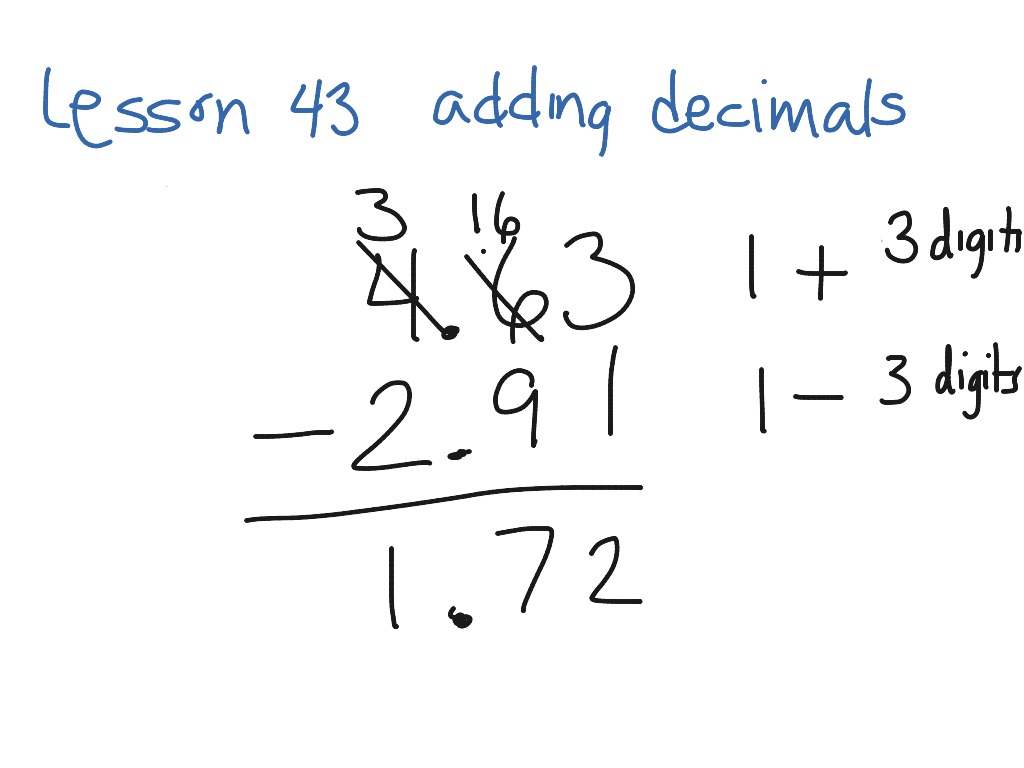 Lesson 43 adding decimals
3 16
4.63
- 2.91
1.72
1 + 3 digit
1 - 3 digits